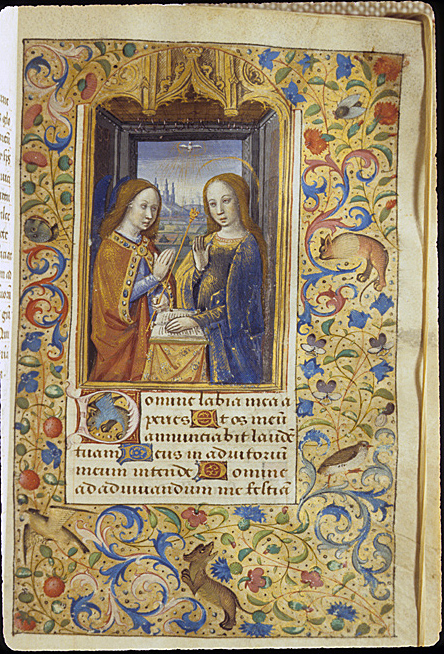 Domine labia mea a
peries Et os meū
annunciabit laudē
tuam Deus in adiutoriū
meum intende Domine
ad adiuvandum me festiā